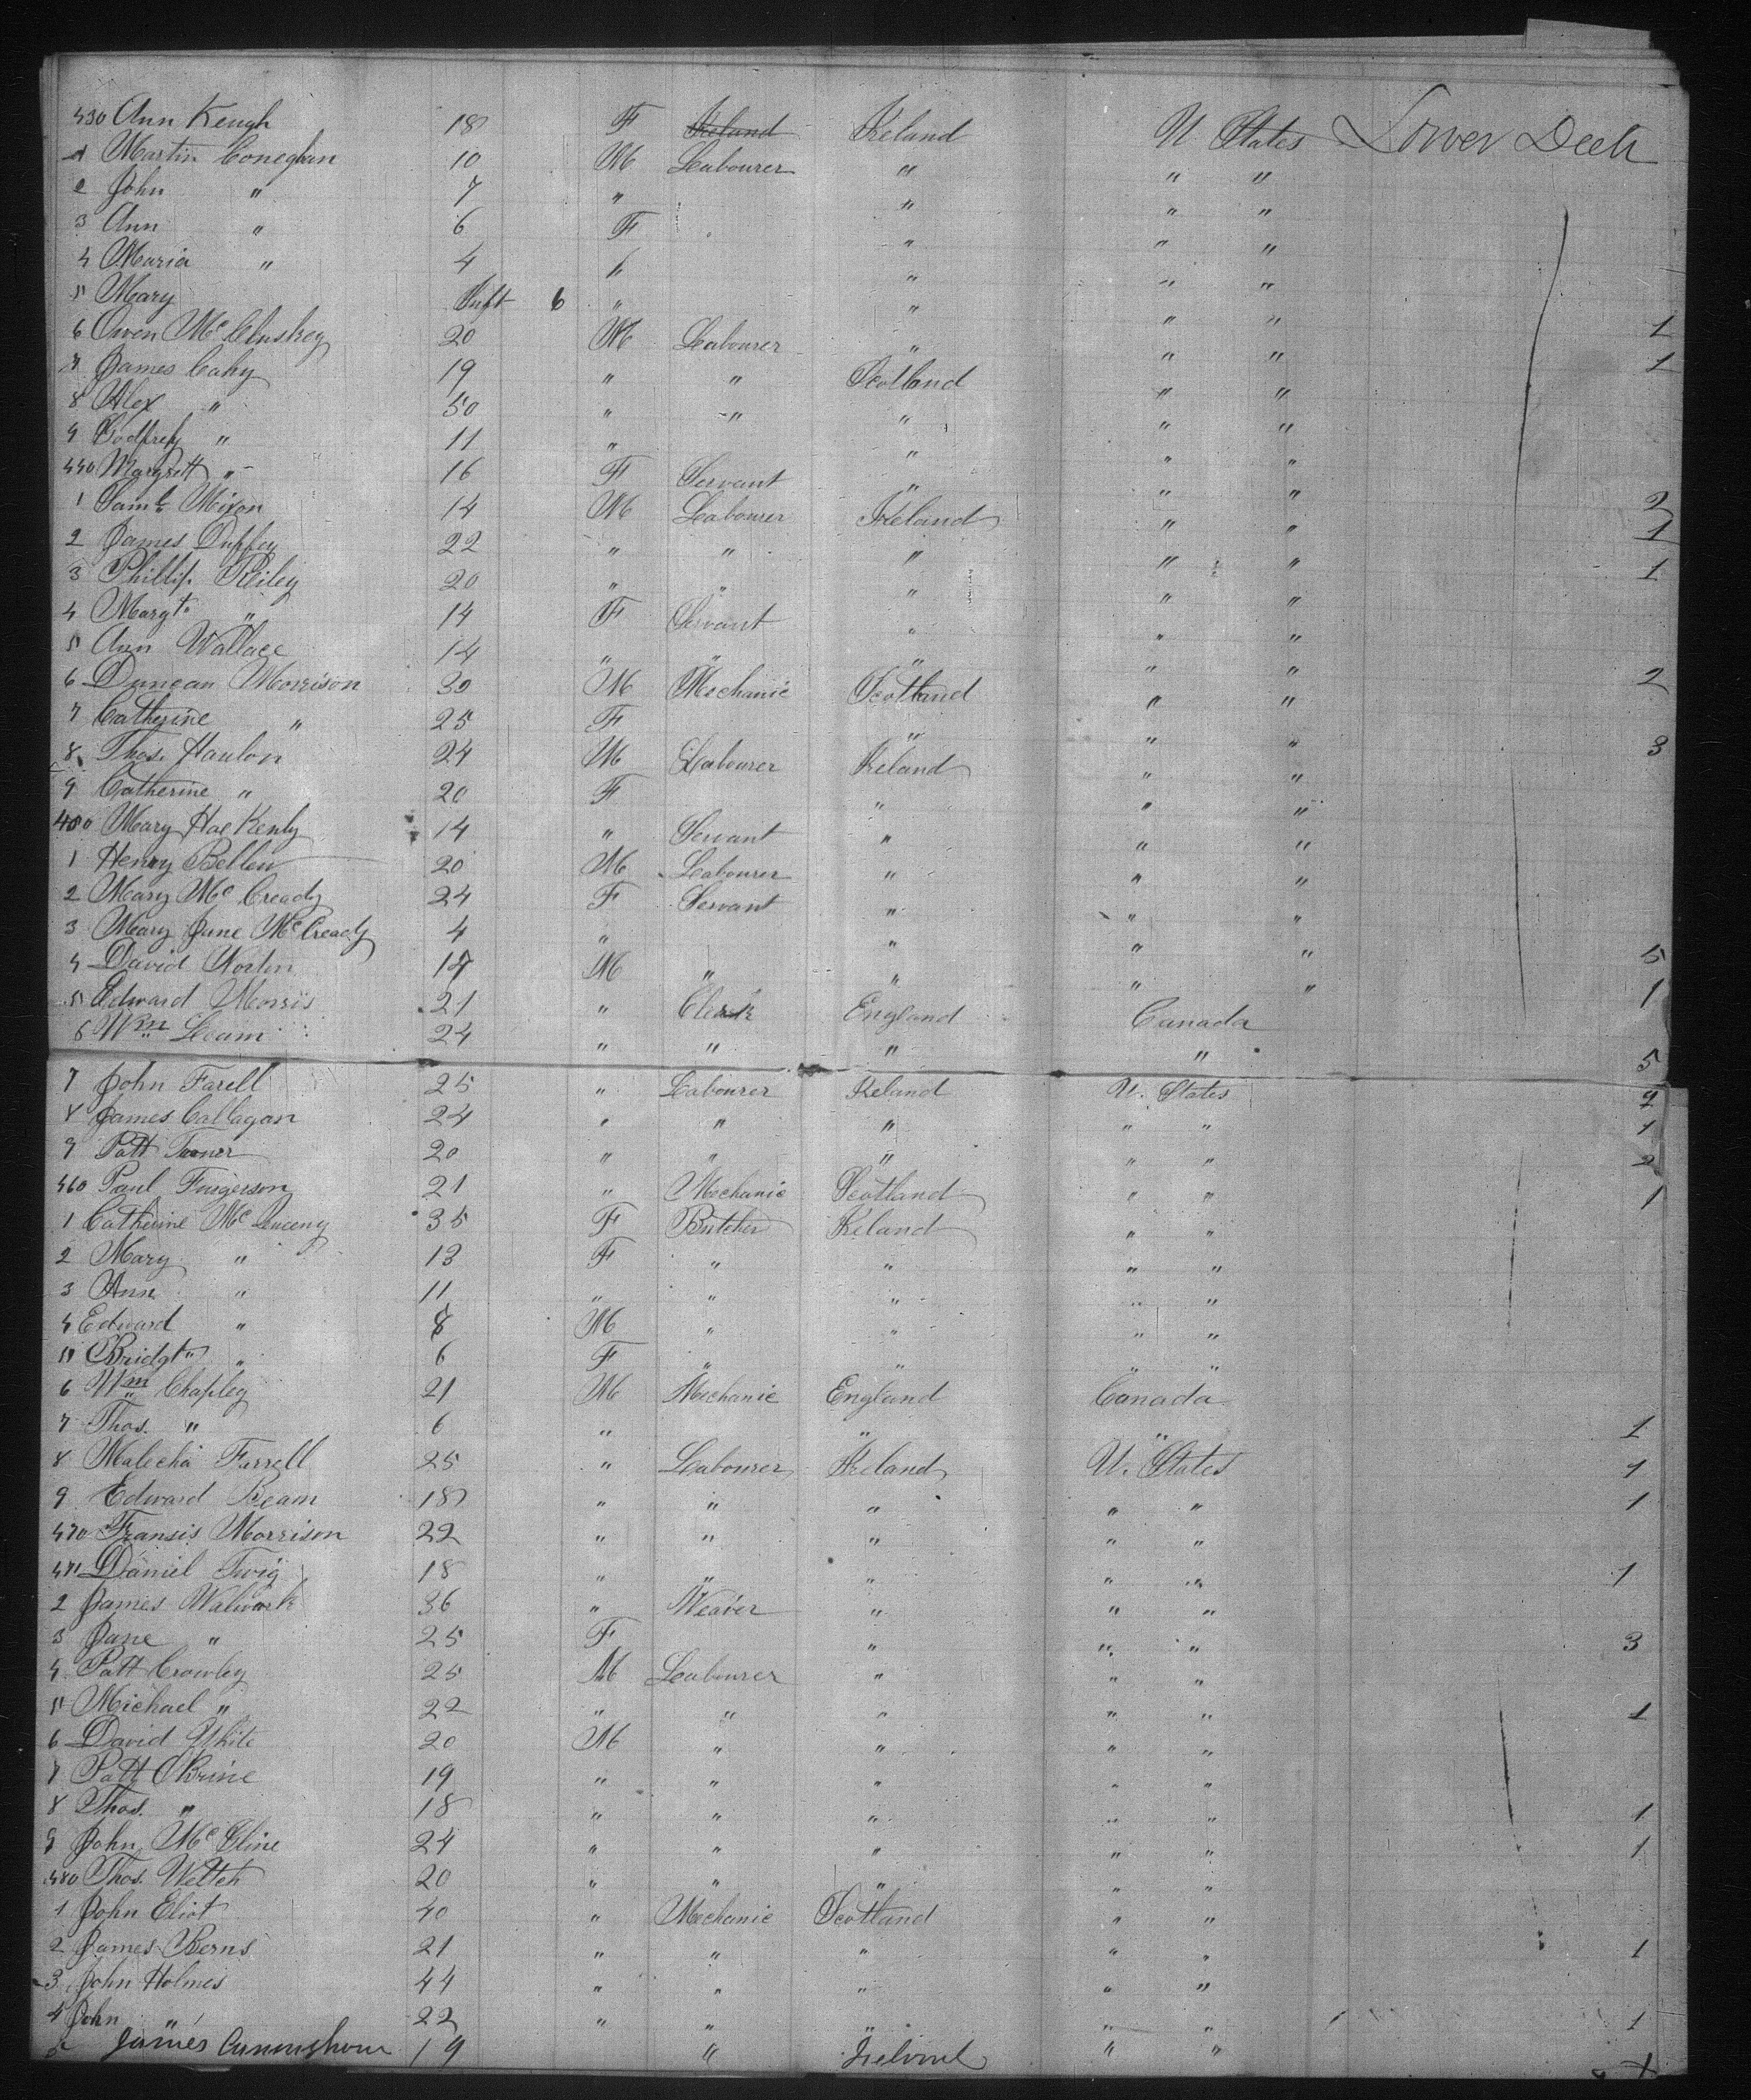 430 Ann Keugh 18 F Ireland Ireland U States Lower Deck
1 Martin Coneghan 10 M Labourer " " "
2 John " 7 " " " "
3 Ann " 6 F " " "
4 Maria " 4 " " " "
5 Mary Inft 6 " " " "
6 Owen McCluskey 20 M Labourer " " " 1
7 James Cahy 19 " " Scotland " " 1
8 Alex " 50 " " " " "
9 Godfrey " 11 " " " "
440 Margrett " 16 F Servant " " "
1 Saml Mixon 14 M Labourer Ireland " " 2
2 James Duffey 22 " " " " " 1
3 Phillip Riley 20 " " " " " 1
4 Margt " 14 F Servant " " "
5 Ann Wallace 14 " " " " "
6 Duncan Morrison 30 M Mechanic Scotland " " 2
7 Catherine " 25 F " " "
8 Thos. Hanlon 24 M Labourer Ireland " " 3
9 Catherine " 20 F " " "
450 Mary 14 " Servant " " "
1 Henry Bellew 20 M Labourer " " "
2 Mary McCready 24 F Servant " " "
3 Mary Jane McCready 4 " " " "
4 David 17 M " " " " 5
5 Edward Morris 21 " Clerk England Canada 1
6 Wm Leam 24 " " " " 5
7 John Farell 25 " Labourer Ireland U. States
8 James Callagan 24 " " " " " 1
9 Patt Toner 20 " " " " " 2
460 Paul Furgerson 21 " Mechanic Scotland " " 1
1 Catherine Mc 35 F Butcher Ireland " "
2 Mary " 13 F " " " "
3 Ann " 11 " " " " "
4 Edward " 8 M " " " "
5 Bridgt " 6 F " " " "
6 Wm Chapley 21 M Mechanic England Canada
7 Thos. " 6 " " " 1
8 Malecha Farrell 25 " Labourer Ireland U. States 1
9 Edward Beam 18 " " " " " 1
470 Fransis Morrison 22 " " " " "
471 Daniel Twig 18 " " " " " 1
2 James Walwork 36 " Weaver " " "
3 Jane " 25 F " " " 3
4 Patt Crowley 25 M Labourer " " "
5 Michael " 22 " " " " " 1
6 David White 20 M " " " "
7 Patt OBrine 19 " " " " "
8 Thos. " 18 " " " " " 1
9 John McCline 24 " " " " " 1
480 Thos. Weltch 20 " " " " "
1 John Eliot 40 " Mechanic Scotland " "
2 James Berns 21 " " " " " 1
3 John Holmes 44 " " " " "
4 John " 22 " " " " " 1
5 James Cunningham 19 " Ireland " " 1